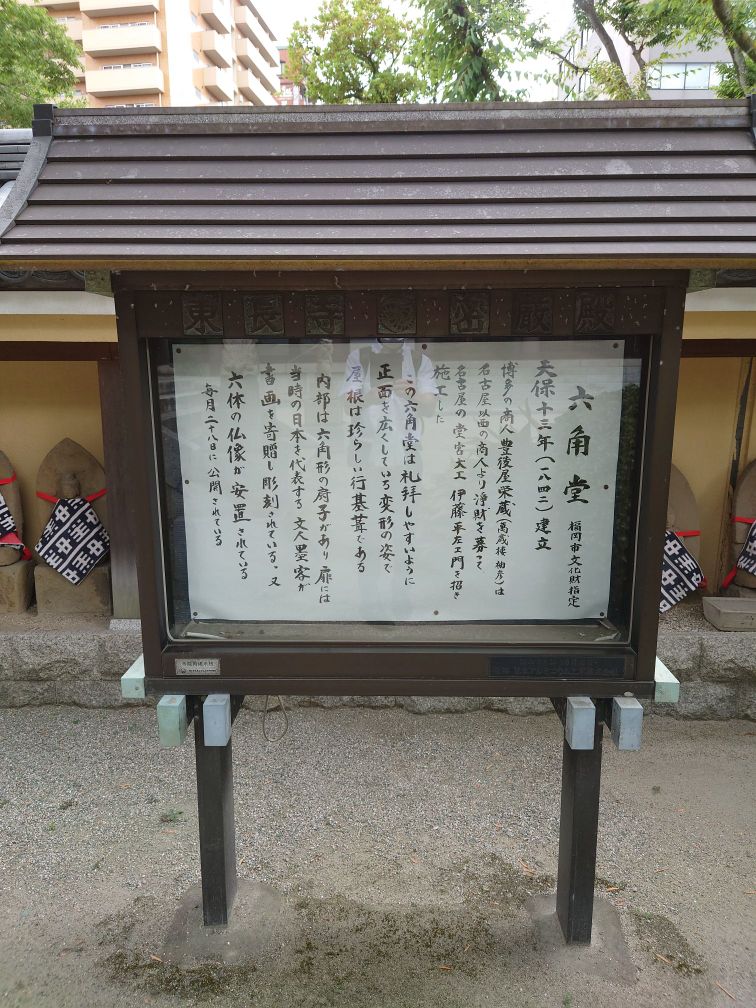 東長寺 密厳殿
六角堂 福岡市文化財指定
天保十三年(一八四二)建立
博多の商人豊後屋栄蔵(萬歳楼柚彦)は
名古屋以西の商人より浄財を募って
名古屋の堂宮大工 伊藤平左エ門を招き
施工した
この六角堂は礼拝しやすいように
正面を広くしている変形の姿で
屋根は珍らしい行基葺である
内部は六角形の厨子があり扉には
当時の日本を代表する文人墨客が
書画を寄贈し彫刻されている。又
六体の仏像が安置されている
毎月二十八日に公開されている